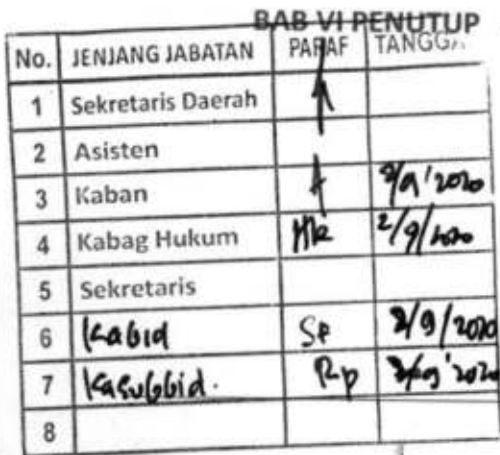 BAB VI PENUTUP
No. JENJANG JABATAN PARAF
1 Sekretaris Daerah
2 Asisten
3 Kaban
4 Kabag Hukum 2/9/2020
5 Sekretaris
6 Kabid 2/9/2020
7 Kasubbid.
8